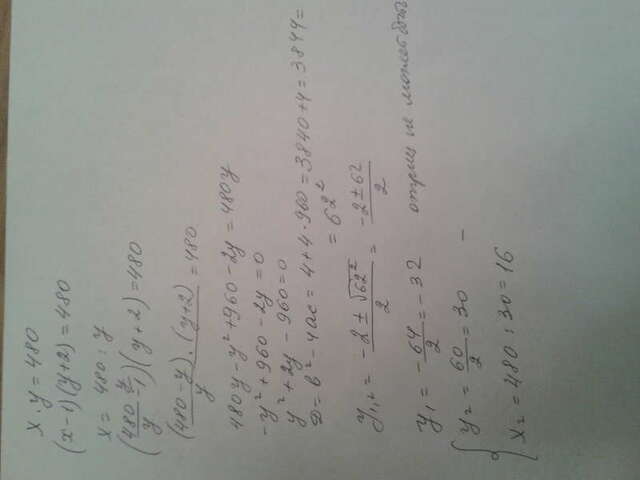 x · y = 480
(x-1)(y+2) = 480
x = 480 : y
(480/y - 1)(y+2) = 480
(480-y)·(y+2)/y = 480
480y - y² + 960 - 2y = 480y
-y² + 960 - 2y = 0
y² + 2y - 960 = 0
D = b² - 4ac = 4 + 4·960 = 3840 + 4 = 3844 =
= 62²
y₁,₂ = (-2 ± √62²)/2 = (-2 ± 62)/2
y₁ = -64/2 = -32 отриц не может быть
{ y₂ = 60/2 = 30 –
x₂ = 480 : 30 = 16